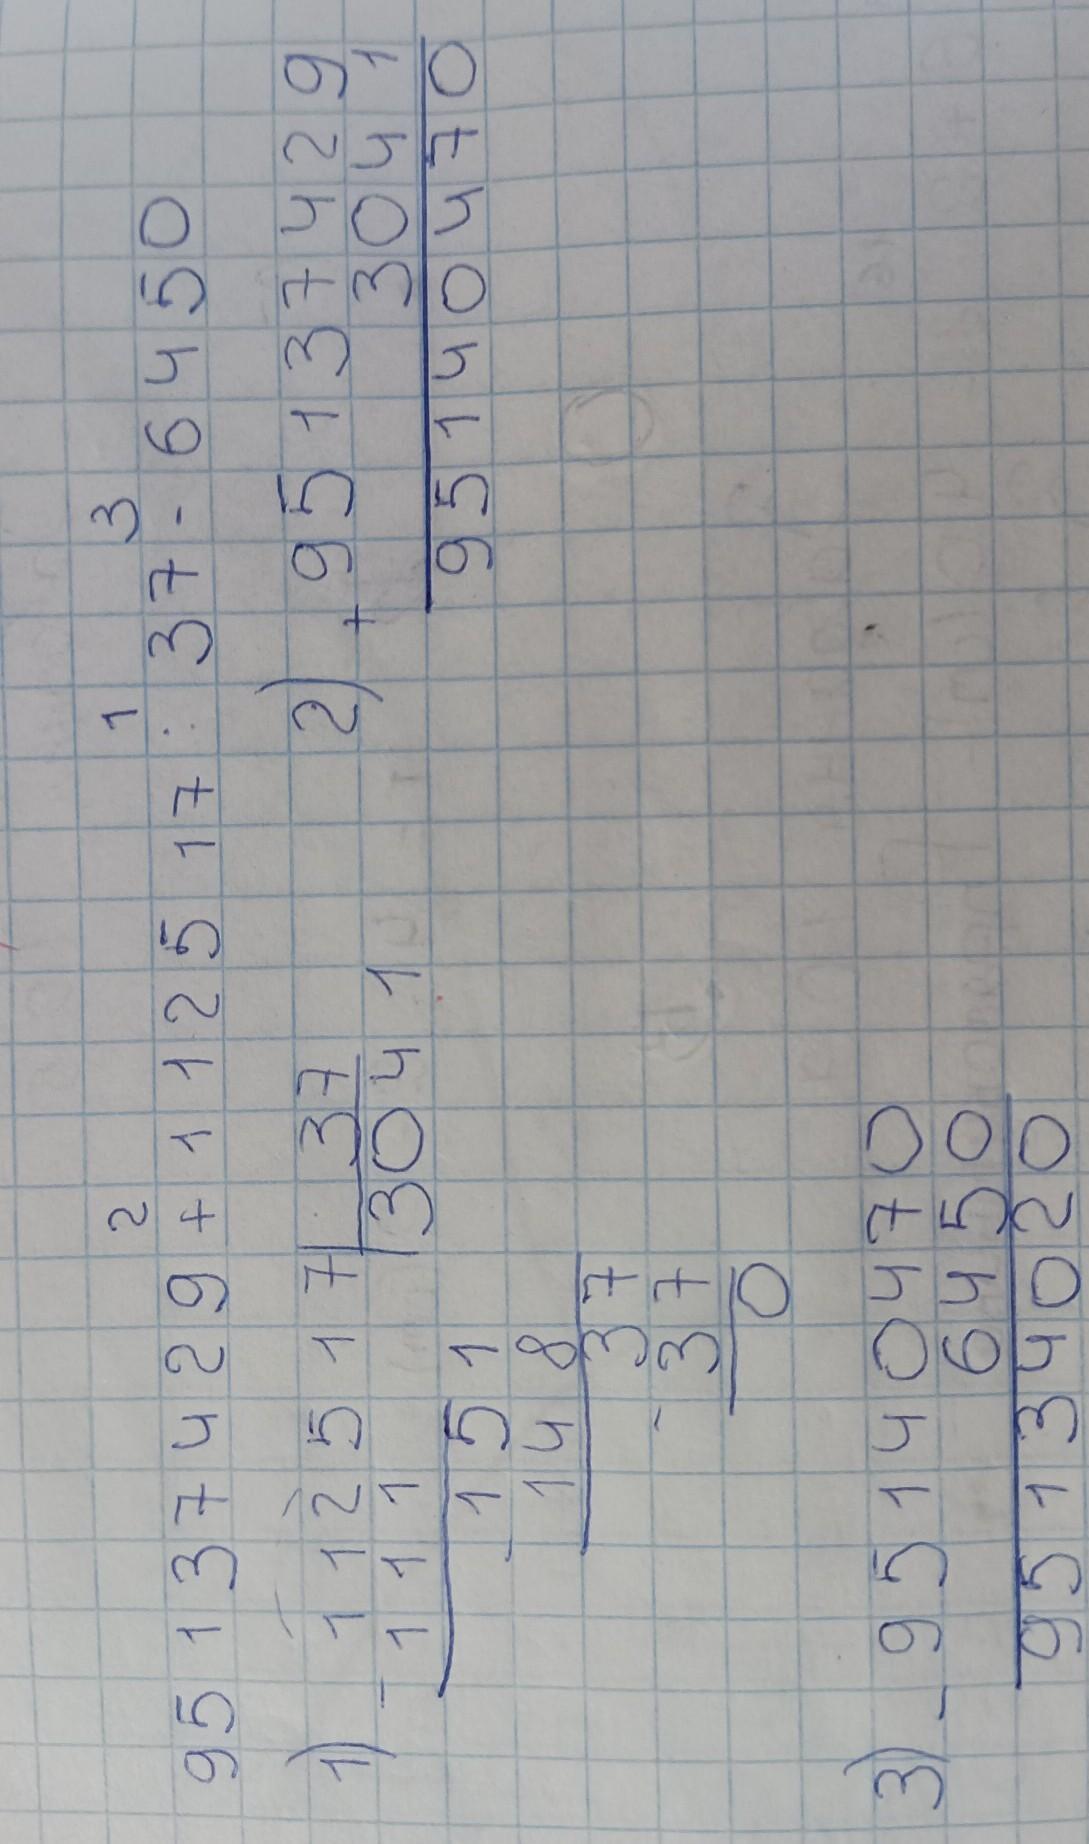 2 1 3
95137429 + 112517 : 37 - 6450
1) 112517 | 37
- 111 3041
- 151
148
37
- 37
0
2) + 95137429
3041
95140470
3) - 95140470
6450
95134020